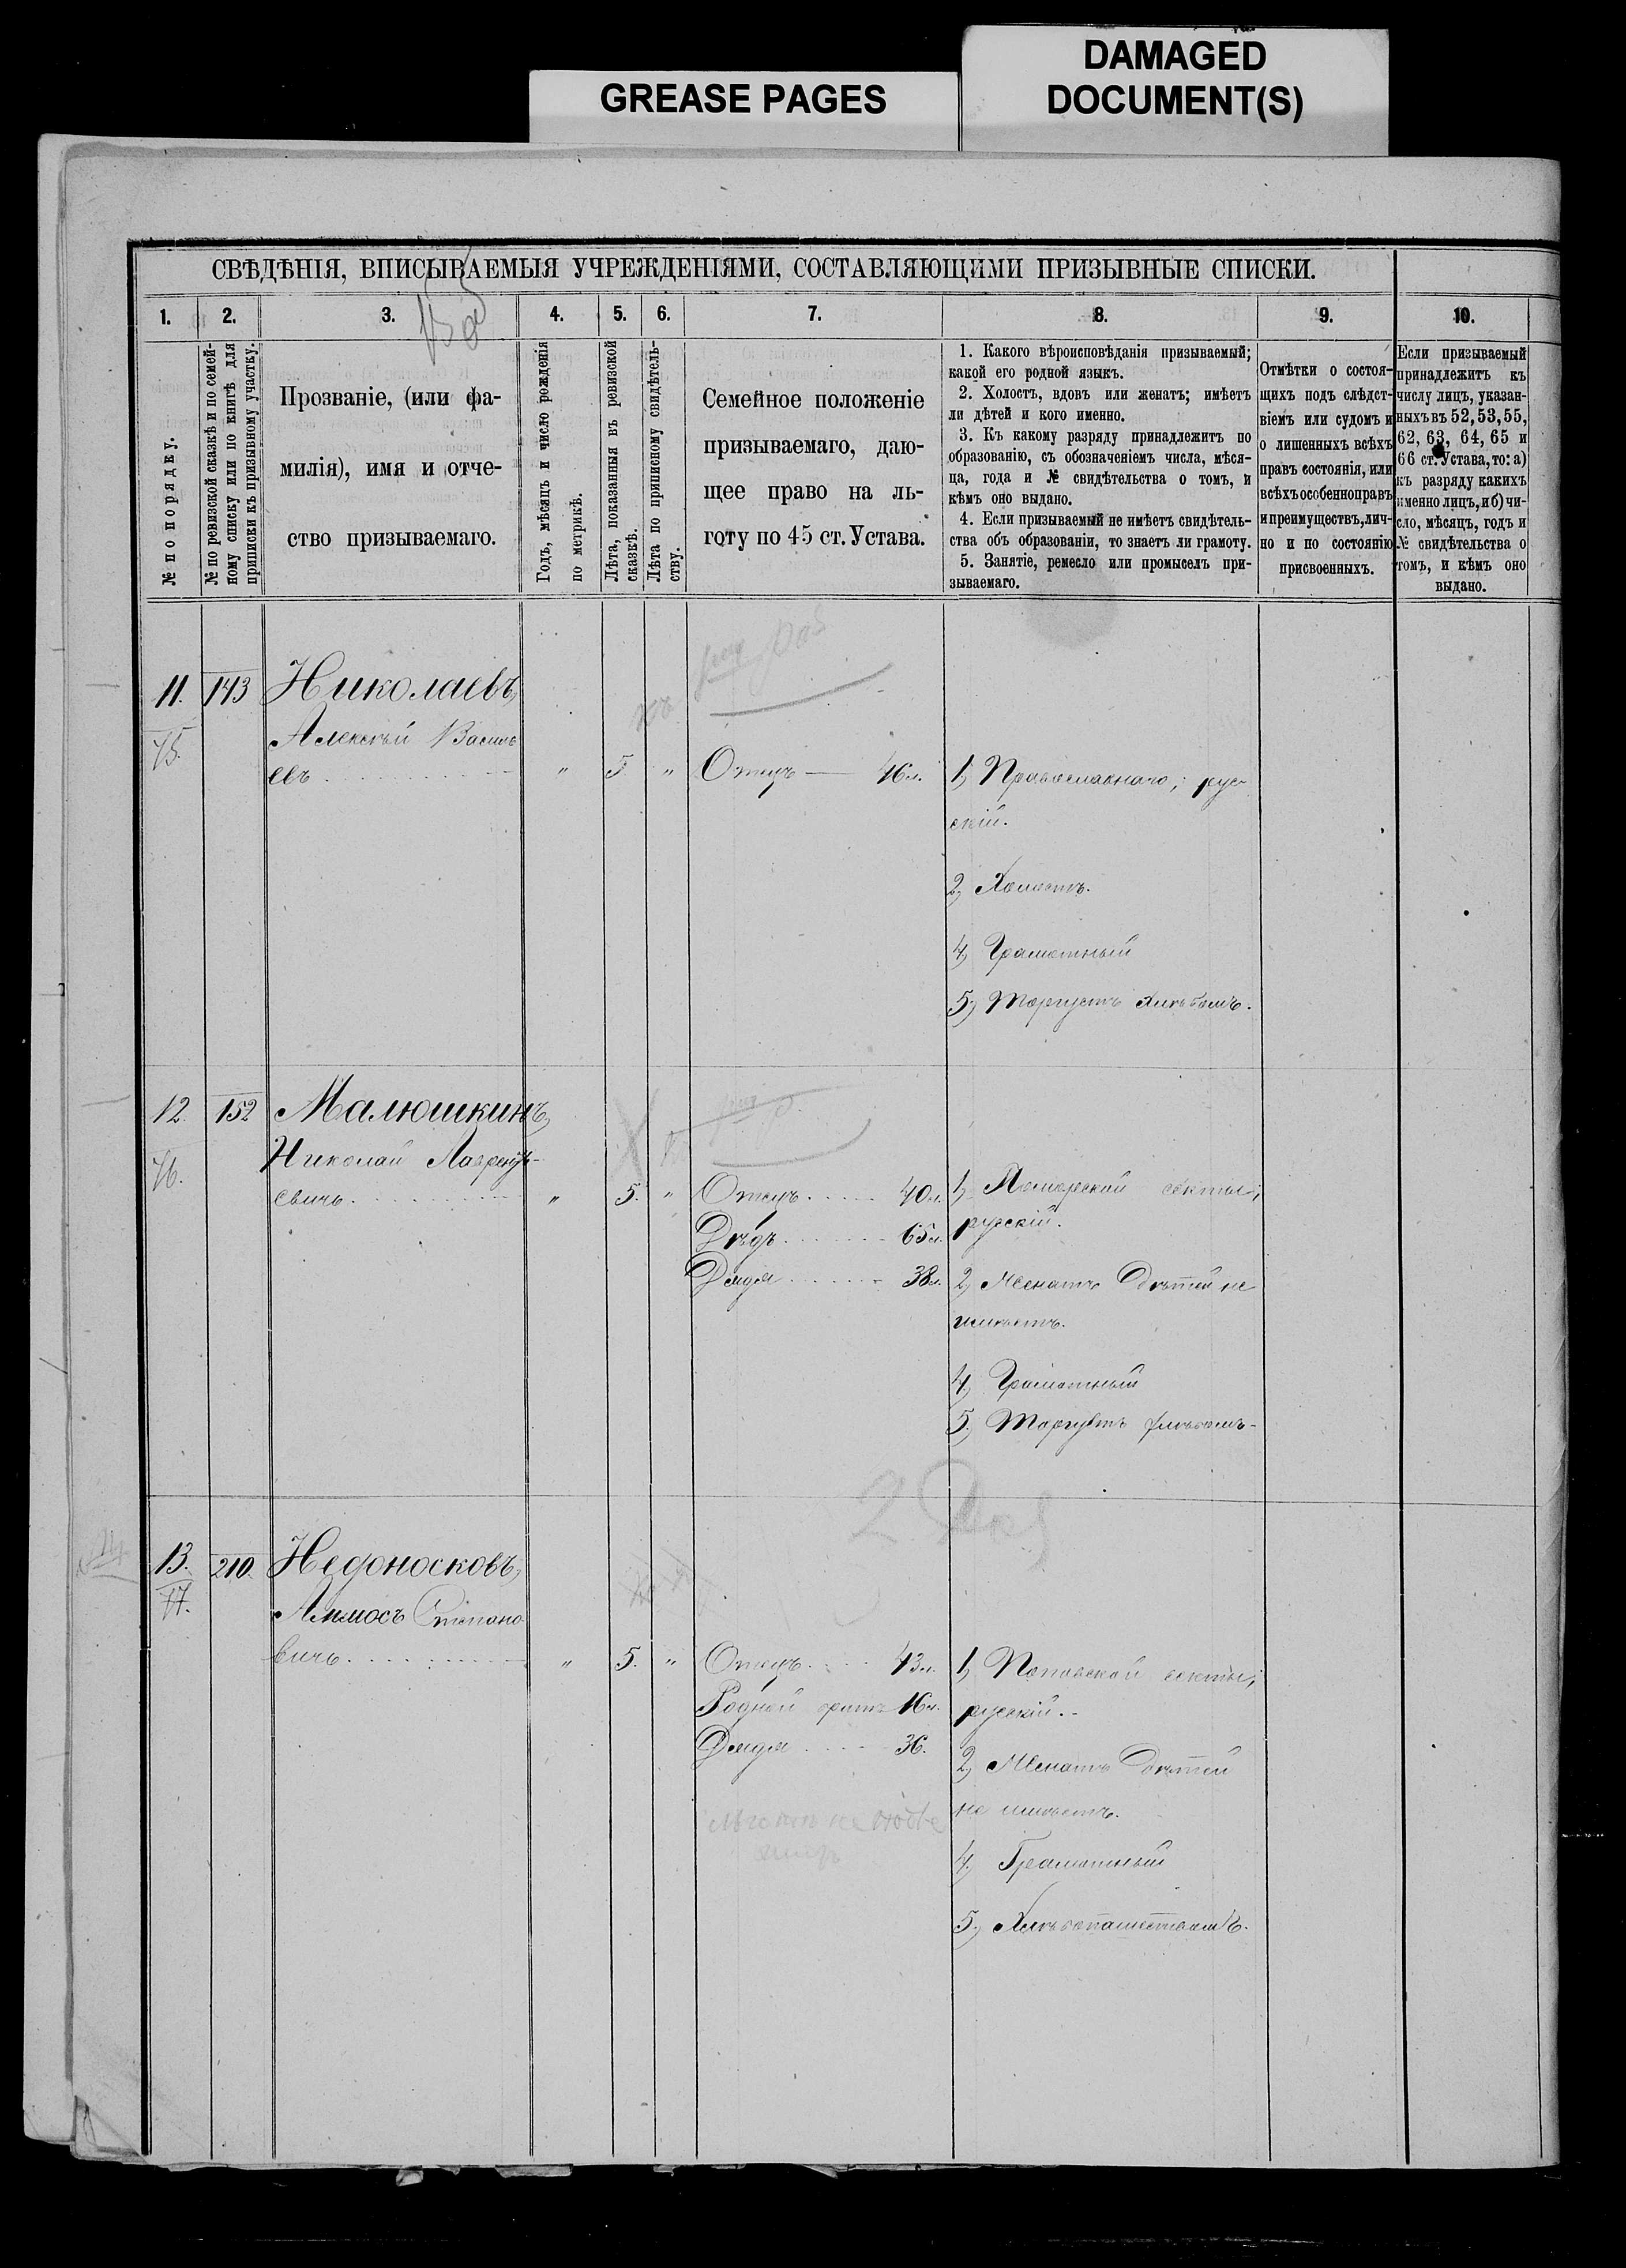 DAMAGED
DOCUMENT(S)
GREASE PAGES
СВѢДѢНІЯ, ВПИСЫВАЕМЫЯ УЧРЕЖДЕНІЯМИ, СОСТАВЛЯЮЩИМИ ПРИЗЫВНЫЕ СПИСКИ.
1.
2.
3.
4.
5.
6.
7.
8.
9.
10.
№ по порядку.
№ по ревизской сказкѣ и по семей-
ному списку или по книгѣ для
приписки къ призывному участку.
Прозваніе, (или фа-
милія), имя и отче-
ство призываемаго.
Годъ, мѣсяцъ и число рожденія
по метрикѣ.
Лѣта, показанныя въ ревизской
сказкѣ.
Лѣта по приписному свидѣтель-
ству.
Семейное положеніе
призываемаго, даю-
щее право на ль-
готу по 45 ст. Устава.
1. Какого вѣроисповѣданія призываемый;
какой его родной языкъ.
2. Холостъ, вдовъ или женатъ; имѣетъ
ли дѣтей и кого именно.
3. Къ какому разряду принадлежитъ по
образованію, съ обозначеніемъ числа, мѣся-
ца, года и № свидѣтельства о томъ, и
кѣмъ оно выдано.
4. Если призываемый не имѣетъ свидѣтель-
ства объ образованіи, то знаетъ ли грамоту.
5. Занятіе, ремесло или промыселъ при-
зываемаго.
Отмѣтки о состоя-
щихъ подъ слѣдст-
віемъ или судомъ и
о лишенныхъ всѣхъ
правъ состоянія, или
всѣхъ особенно правъ
и преимуществъ, лич-
но и по состоянію
присвоенныхъ.
Если призываемый
принадлежитъ къ
числу лицъ, указан-
ныхъ въ 52, 53, 55,
62, 63, 64, 65 и
66 ст. Устава, то: а)
къ разряду какихъ
именно лицъ, и б) чи-
сло, мѣсяцъ, годъ и
№ свидѣтельства о
томъ, и кѣмъ оно
выдано.
11. 143 Николаевъ,
75. Алексѣй Василь
евъ " 5 " Отецъ — 46 л.
1, Православнаго; рус-
скій.
2, Холостъ.
4, Грамотный
5, Торгуетъ хлѣбомъ.
12. 152 Малюшкинъ,
76. Николай Лаврентье-
евичъ " 5. " Отецъ 40 л.
Дѣдъ 65 л.
Дядя 38 л.
1, Поморской секты;
русскій.
2, Женатъ Дѣтей не
имѣетъ.
4, Грамотный
5. Торгуетъ хлѣбомъ-
2
13. 210. Недоносковъ,
77. Аммосъ Степано
вичъ " 5. " Отецъ 43 л.
Родной братъ 16 л.
Дядя 36.
1, Поповской секты;
русскій.-
2, Женатъ Дѣтей
не имѣетъ.
4, Грамотный
5. Хлѣбопашествомъ.